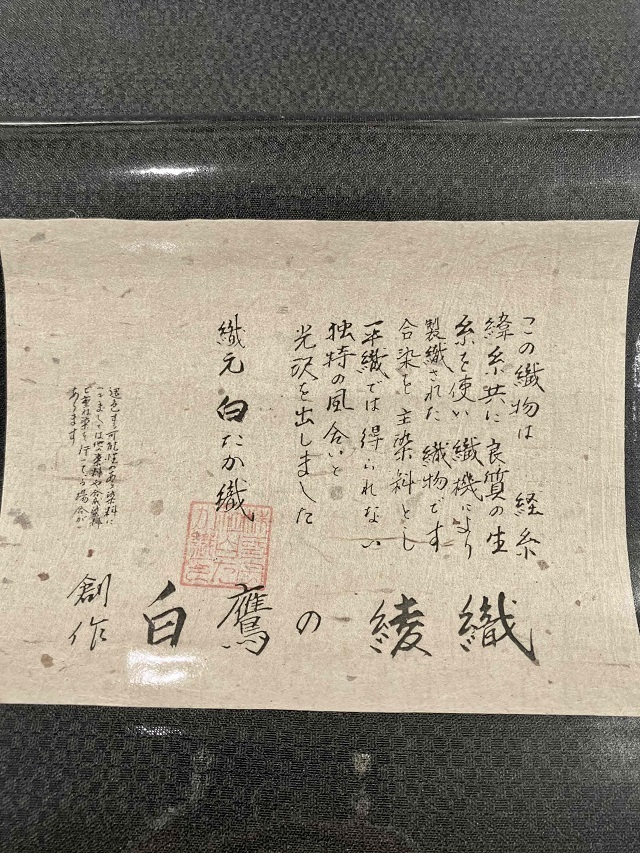 この織物は 経糸
緯糸共に 良質の生
糸を使い 織機により
製織された 織物です
合染を主染料とし
平織では得られない
独特の風合いと
光沢を出しました
織元 白たか織
退色する可能性のある染料に
つきましては他の染料や合成染料
で重ね染を行っている場合が
あります
創作 白鷹の綾織